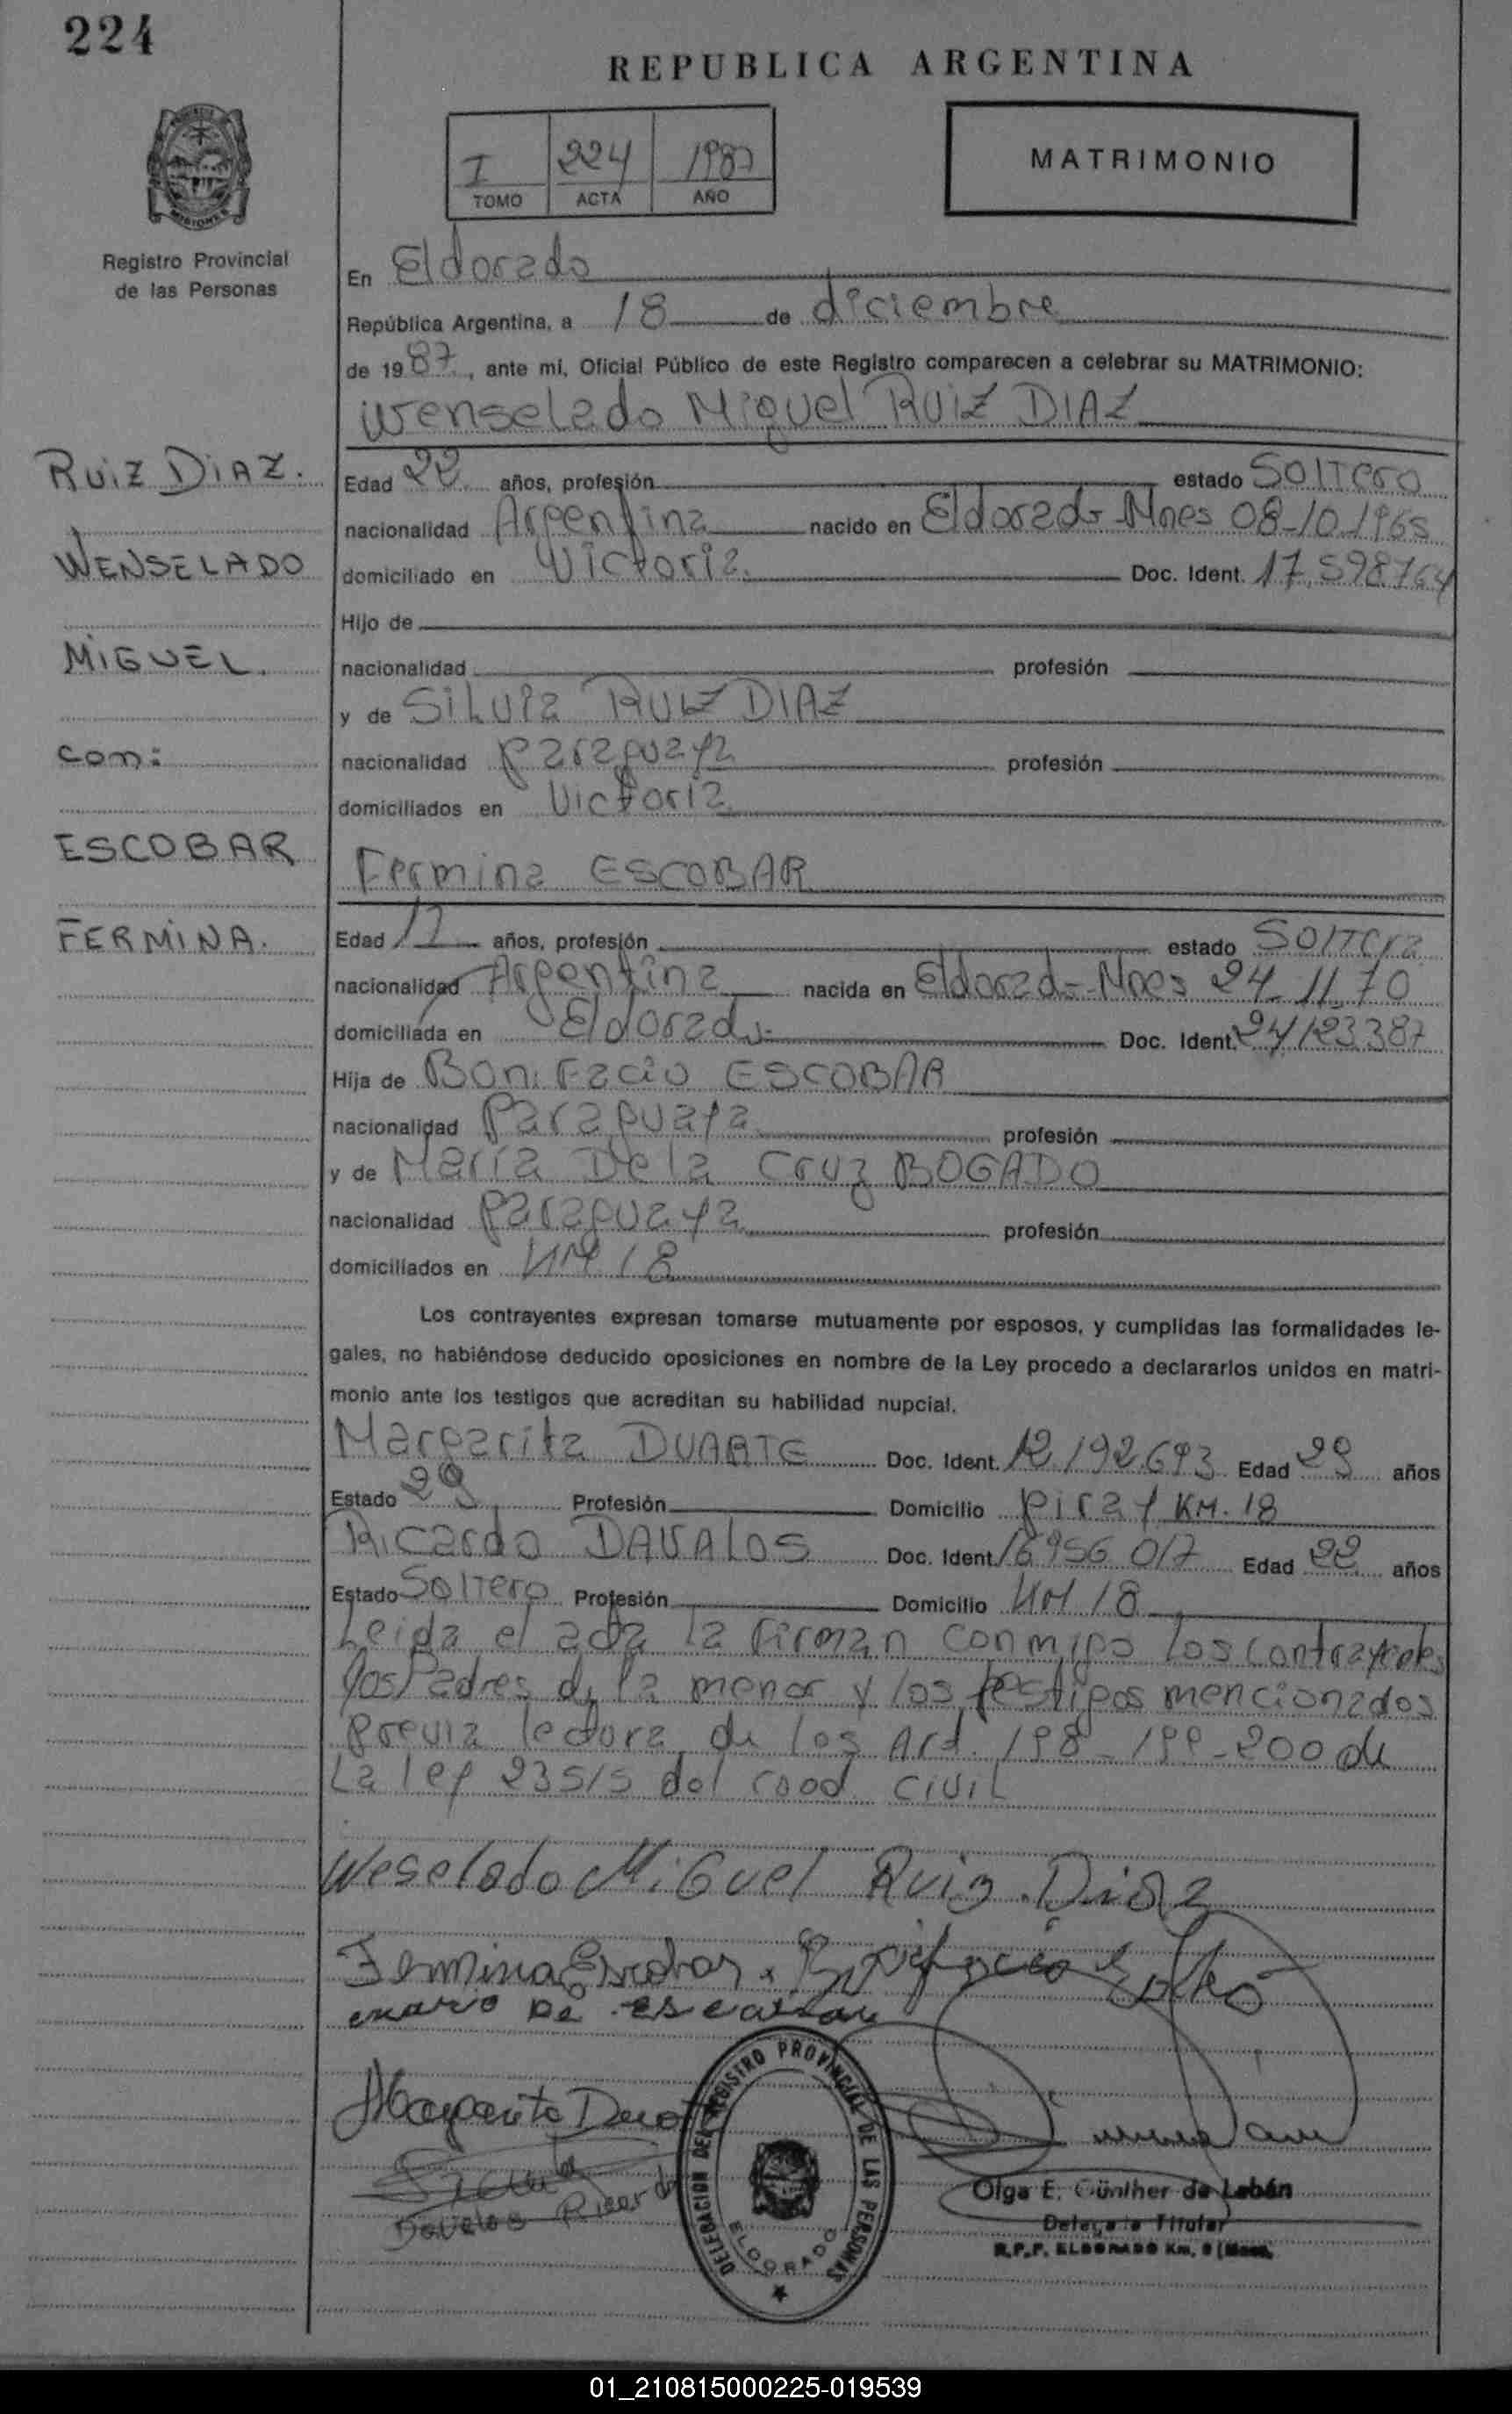 224
REPUBLICA ARGENTINA
I 224 1987
TOMO ACTA AÑO
MATRIMONIO
MISIONES
Registro Provincial
de las Personas
En Eldorado
República Argentina, a 18 de diciembre
de 1987, ante mi, Oficial Público de este Registro comparecen a celebrar su MATRIMONIO:
Wenselado Miguel RUIZ DIAZ
RUIZ DIAZ.
WENSELADO
MIGUEL.
con:
ESCOBAR
FERMINA.
Edad 22 años, profesión estado Soltero
nacionalidad Argentina nacido en Eldorado Mnes 08-10-1965
domiciliado en Victoria Doc. Ident. 17.598764
Hijo de
nacionalidad profesión
y de Silvia RUIZ DIAZ
nacionalidad paraguaya profesión
domiciliados en Victoria
Fermina ESCOBAR
Edad 17 años, profesión estado Soltera
nacionalidad Argentina nacida en Eldorado-Mnes 24-11-70
domiciliada en Eldorado Doc. Ident. 24123387
Hija de Bonifacio ESCOBAR
nacionalidad paraguaya profesión
y de María De la Cruz BOGADO
nacionalidad paraguaya profesión
domiciliados en KM 18
Los contrayentes expresan tomarse mutuamente por esposos, y cumplidas las formalidades le-
gales, no habiéndose deducido oposiciones en nombre de la Ley procedo a declararlos unidos en matri-
monio ante los testigos que acreditan su habilidad nupcial.
Margarita DUARTE Doc. Ident. 12.192.693 Edad 29 años
Estado 29 Profesión Domicilio piray KM. 18
Ricardo DAVALOS Doc. Ident. 16956 017 Edad 22 años
Estado Soltero Profesión Domicilio KM 18
Leida el acta la firman conmigo los contrayentes
los Padres de la menor y los testigos mencionados
previa lectura de los Art. 198-199-200 de
La ley 23515 del cood. civil
Weselado Miguel Ruiz Diaz
Fermina Escobar. Bonifacio
de escobar
Margarita
Davalos Ricardo
DELEGACION DEL REGISTRO PROVINCIAL DE LAS PERSONAS
ELDORADO
Olga E. Günther de Labán
Delegada Titular
R.P.P. ELDORADO Km. 9 (Mnes)
01_210815000225-019539